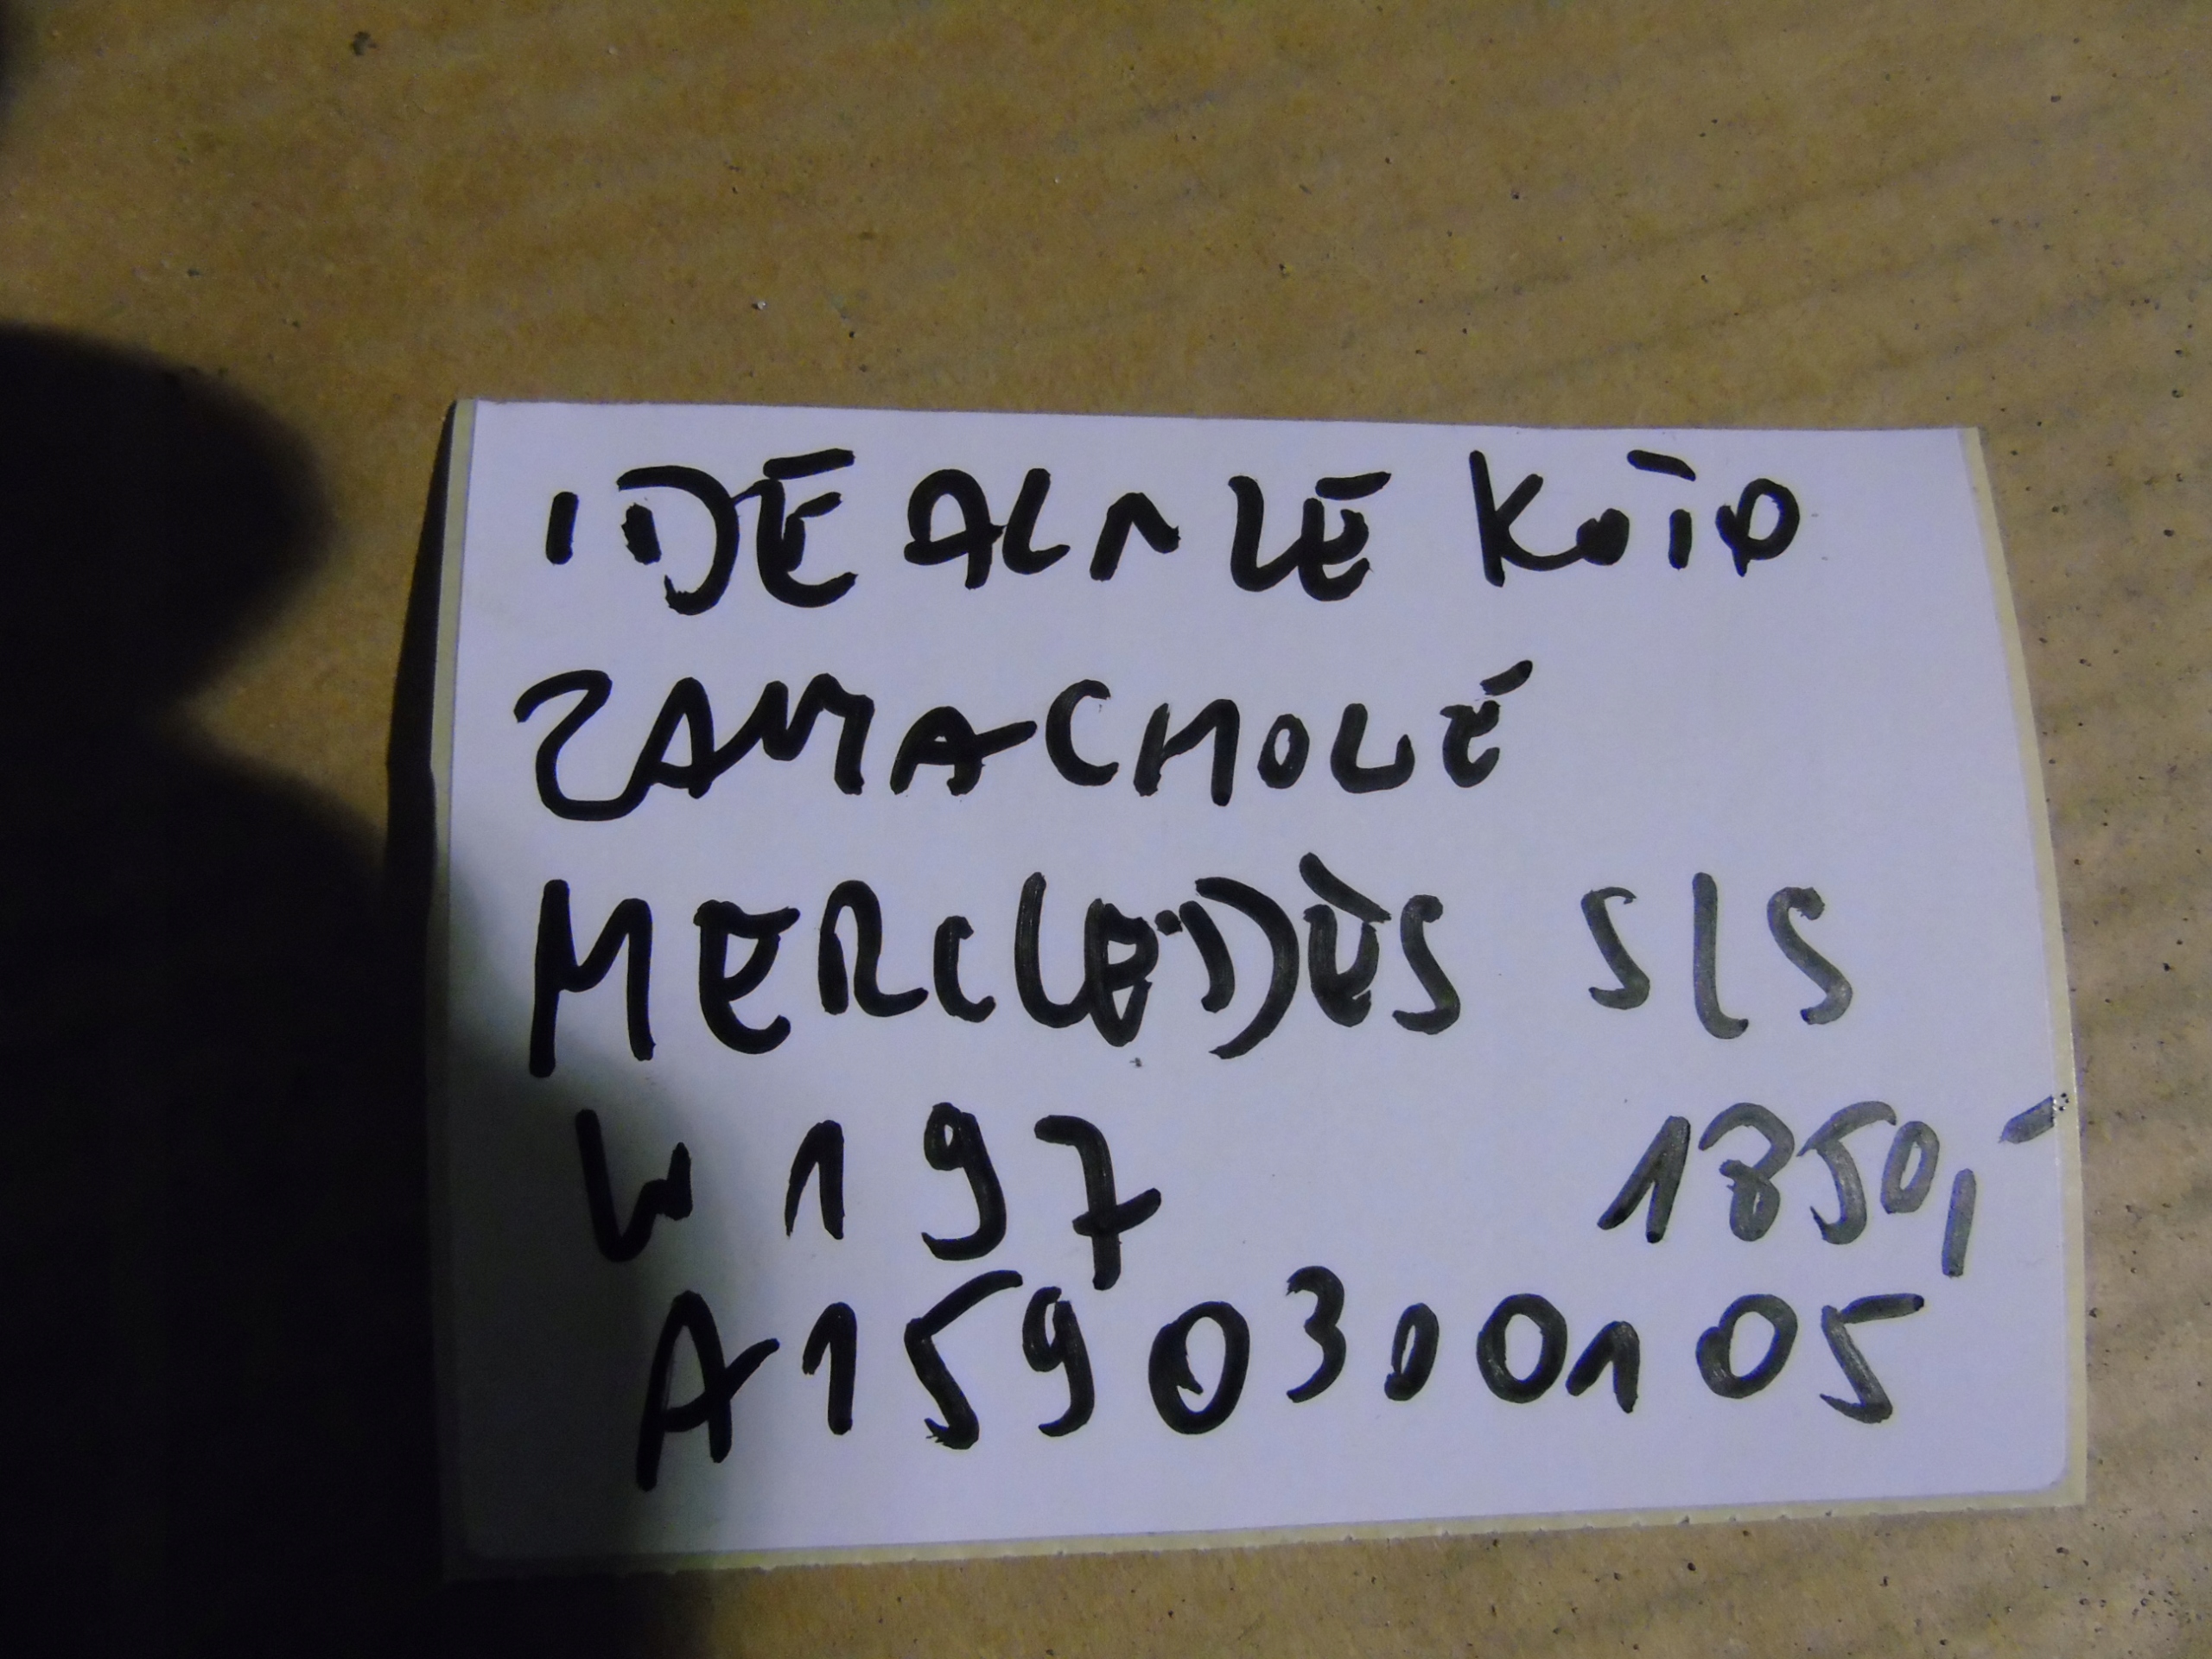 IDEALNE KOŁO
ZAMACHOWE
MERCEDES SLS
W 197 1850,-
A1590300105